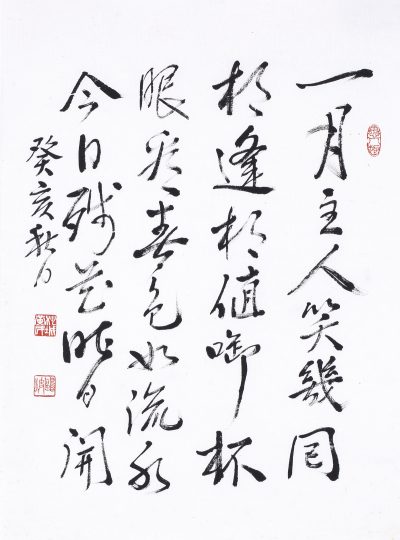 一月主人笑幾囘
相逢相值啣杯
眼看春色如流水
今日残花昨日開
癸亥秋日